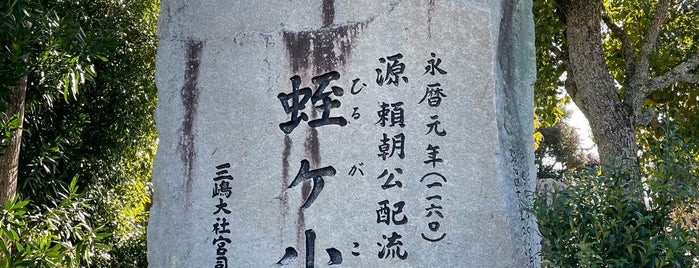 永暦元年(一一六〇)
源頼朝公配流
蛭ヶ小
ひるがこ
三嶋大社宮司